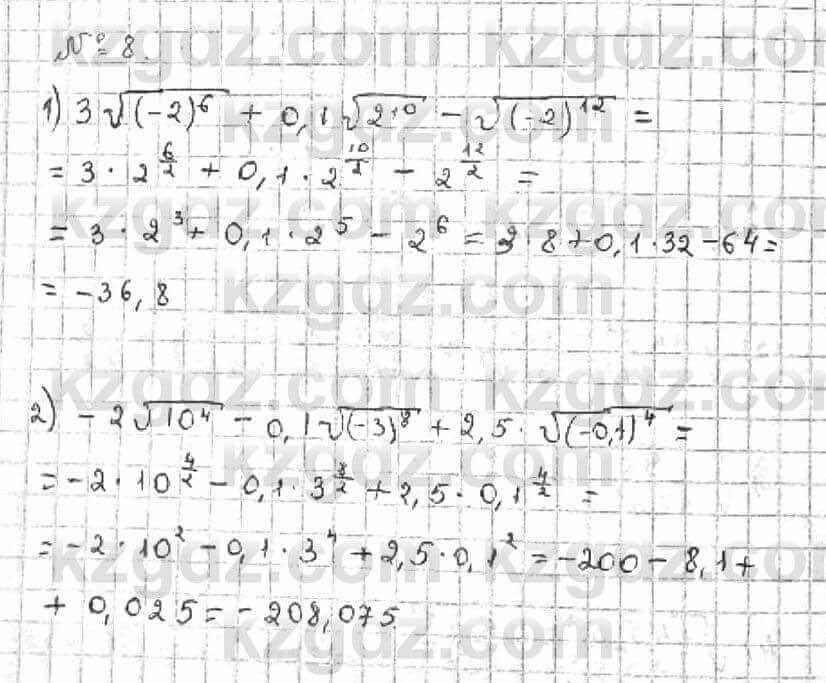 № 8.
1) 3√(-2)⁶ + 0,1√2¹⁰ - √(-2)¹² =
= 3 · 2^(6/2) + 0,1 · 2^(10/2) - 2^(12/2) =
= 3 · 2³ + 0,1 · 2⁵ - 2⁶ = 3 · 8 + 0,1 · 32 - 64 =
= -36,8
2) -2√10⁴ - 0,1√(-3)⁸ + 2,5 · √(-0,1)⁴ =
= -2 · 10^(4/2) - 0,1 · 3^(8/2) + 2,5 · 0,1^(4/2) =
= -2 · 10² - 0,1 · 3⁴ + 2,5 · 0,1² = -200 - 8,1 +
+ 0,025 = -208,075
kzgdz.com